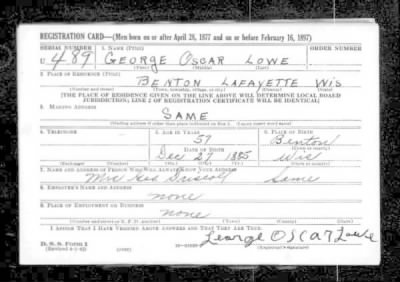 REGISTRATION CARD—(Men born on or after April 28, 1877 and on or before February 16, 1897)
SERIAL NUMBER 1. NAME (Print) ORDER NUMBER
U 489 GEORGE OSCAR LOWE
(First) (Middle) (Last)
2. PLACE OF RESIDENCE (Print)
BENTON LAFAYETTE WIS
(Number and street) (Town, township, village, or city) (County) (State)
[THE PLACE OF RESIDENCE GIVEN ON THE LINE ABOVE WILL DETERMINE LOCAL BOARD
JURISDICTION; LINE 2 OF REGISTRATION CERTIFICATE WILL BE IDENTICAL]
3. MAILING ADDRESS
SAME
[Mailing address if other than place indicated on line 2. If same insert word same]
4. TELEPHONE 5. AGE IN YEARS 6. PLACE OF BIRTH
57 Benton
DATE OF BIRTH (Town or county)
Dec 27 1885 Wis
(Exchange) (Number) (Mo.) (Day) (Yr.) (State or country)
7. NAME AND ADDRESS OF PERSON WHO WILL ALWAYS KNOW YOUR ADDRESS
Mrs Driscoll Same
8. EMPLOYER'S NAME AND ADDRESS
none
9. PLACE OF EMPLOYMENT OR BUSINESS
none
(Number and street or R. F. D. number) (Town) (County) (State)
I AFFIRM THAT I HAVE VERIFIED ABOVE ANSWERS AND THAT THEY ARE TRUE.
D. S. S. Form 1 George Oscar Lowe
(Revised 4-1-42) (over) (Registrant's signature)